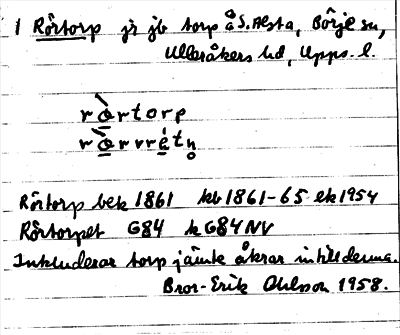 1 Rörtorp jr jb torp å S. Åsta, Börje sn,
Ulleråkers hd, Upps. l.
rörtorp
rörvrétn
Rörtorp bek 1861 kb 1861-65 ek 1954
Rörtorpet G84 k G84 NV
Inkluderar torp jämte åkrar intill denna.
Bror-Erik Ohlsson 1958.